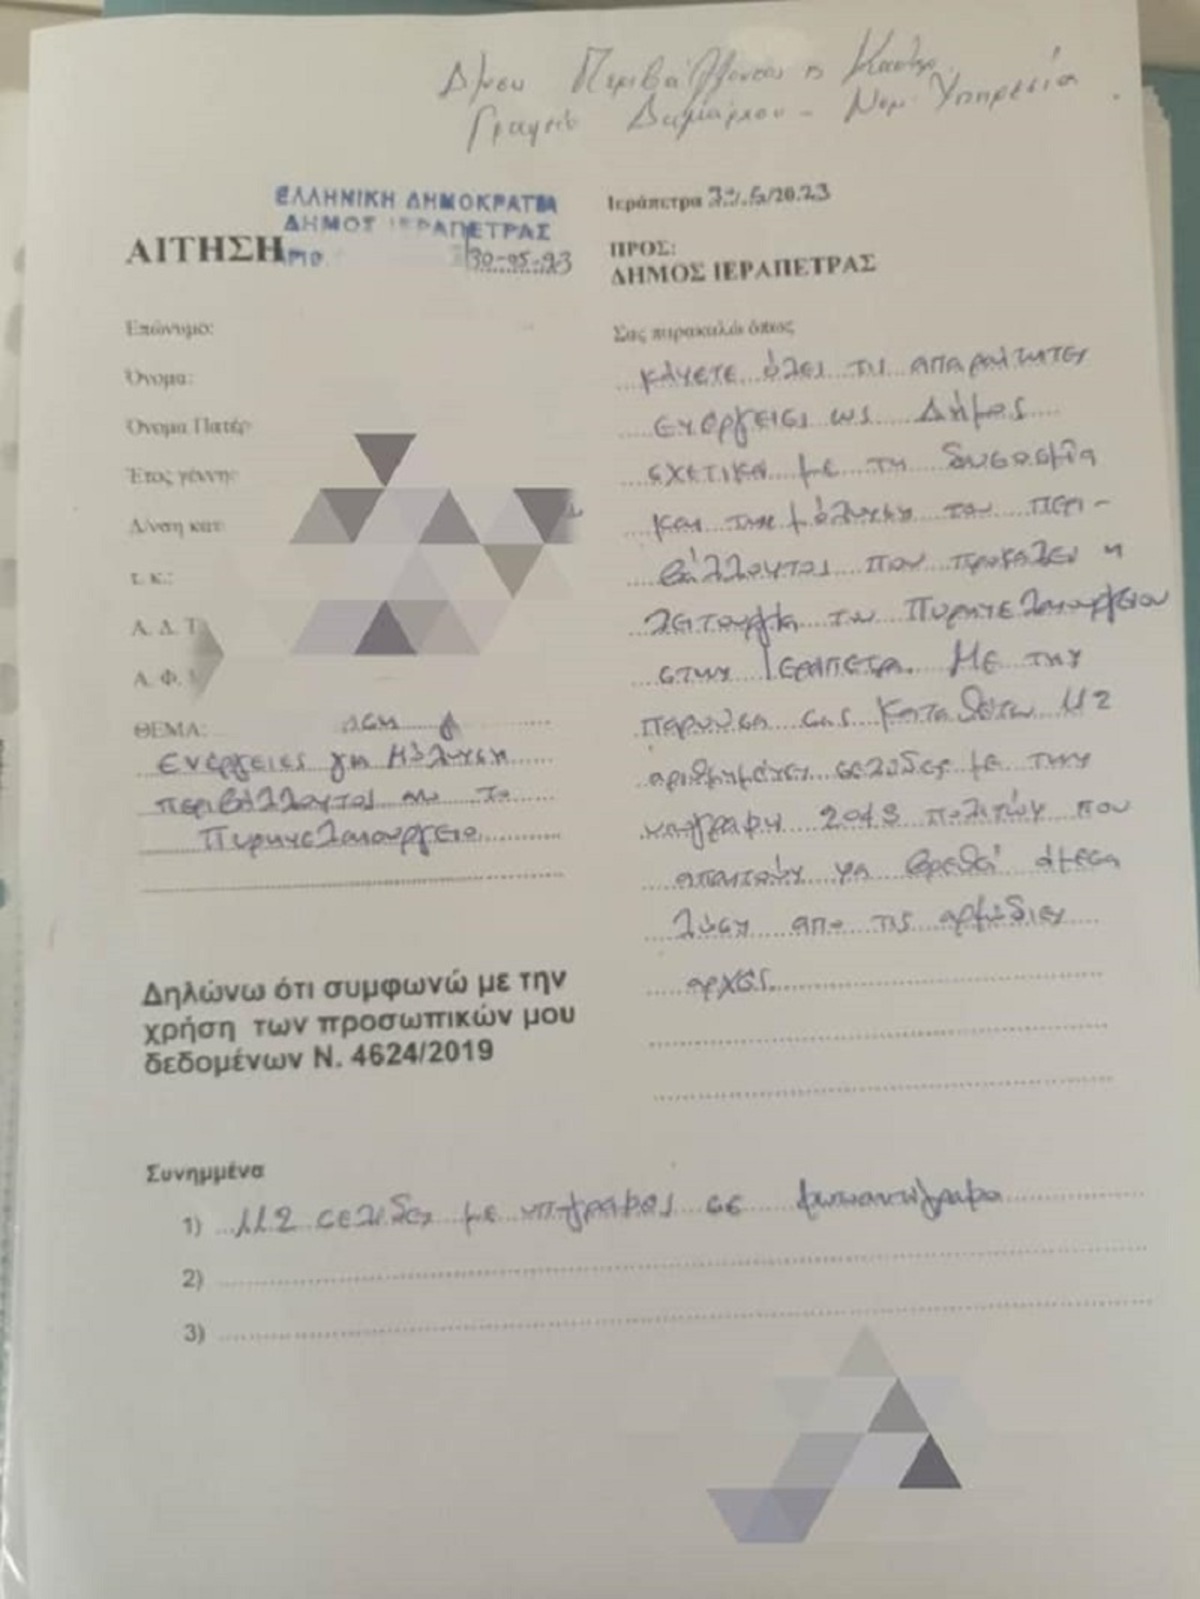 Δ/νση Περιβάλλοντος
Γραφείο Δημάρχου - Νομ. Υπηρεσία
ΕΛΛΗΝΙΚΗ ΔΗΜΟΚΡΑΤΙΑ
ΔΗΜΟΣ ΙΕΡΑΠΕΤΡΑΣ
30-05-23
ΑΙΤΗΣΗ
Επώνυμο:
Όνομα:
Όνομα Πατέρ
Έτος γέννη
Δ/νση κατ
τ. κ.:
Α. Δ. Τ
Α. Φ.
ΘΕΜΑ:
ενέργειες για Μόλυνση
περιβάλλοντος απο το
Πυρηνελαιουργείο
Δηλώνω ότι συμφωνώ με την
χρήση των προσωπικών μου
δεδομένων Ν. 4624/2019
Ιεράπετρα 30/5/2023
ΠΡΟΣ:
ΔΗΜΟΣ ΙΕΡΑΠΕΤΡΑΣ
Σας παρακαλώ όπως
κάνετε όλες τις απαραίτητες
ενέργειες ως Δήμος
σχετικά με τη δυσοσμία
και την μόλυνση του περι-
βάλλοντος που προκαλεί η
λειτουργία του Πυρηνελαιουργείου
στην Ιεράπετρα. Με την
παρούσα σας καταθέτω 112
αριθμημένες σελίδες με την
υπογραφή 2048 πολιτών που
απαιτούν να βρεθεί άμεσα
λύση απο τις αρμόδιες
αρχές.
Συνημμένα
1) 112 σελίδες με υπογραφές σε φωτοαντίγραφα
2)
3)